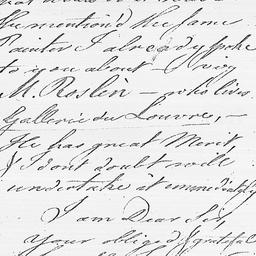 He mention'd the same
Painter I already spoke
to you about — viz
M. Roslen — who lives
Gallerie du Louvre, —
He has great Merit,
& I dont doubt will
undertake it immediately
I am Dear Sir,
Your obliged & grateful